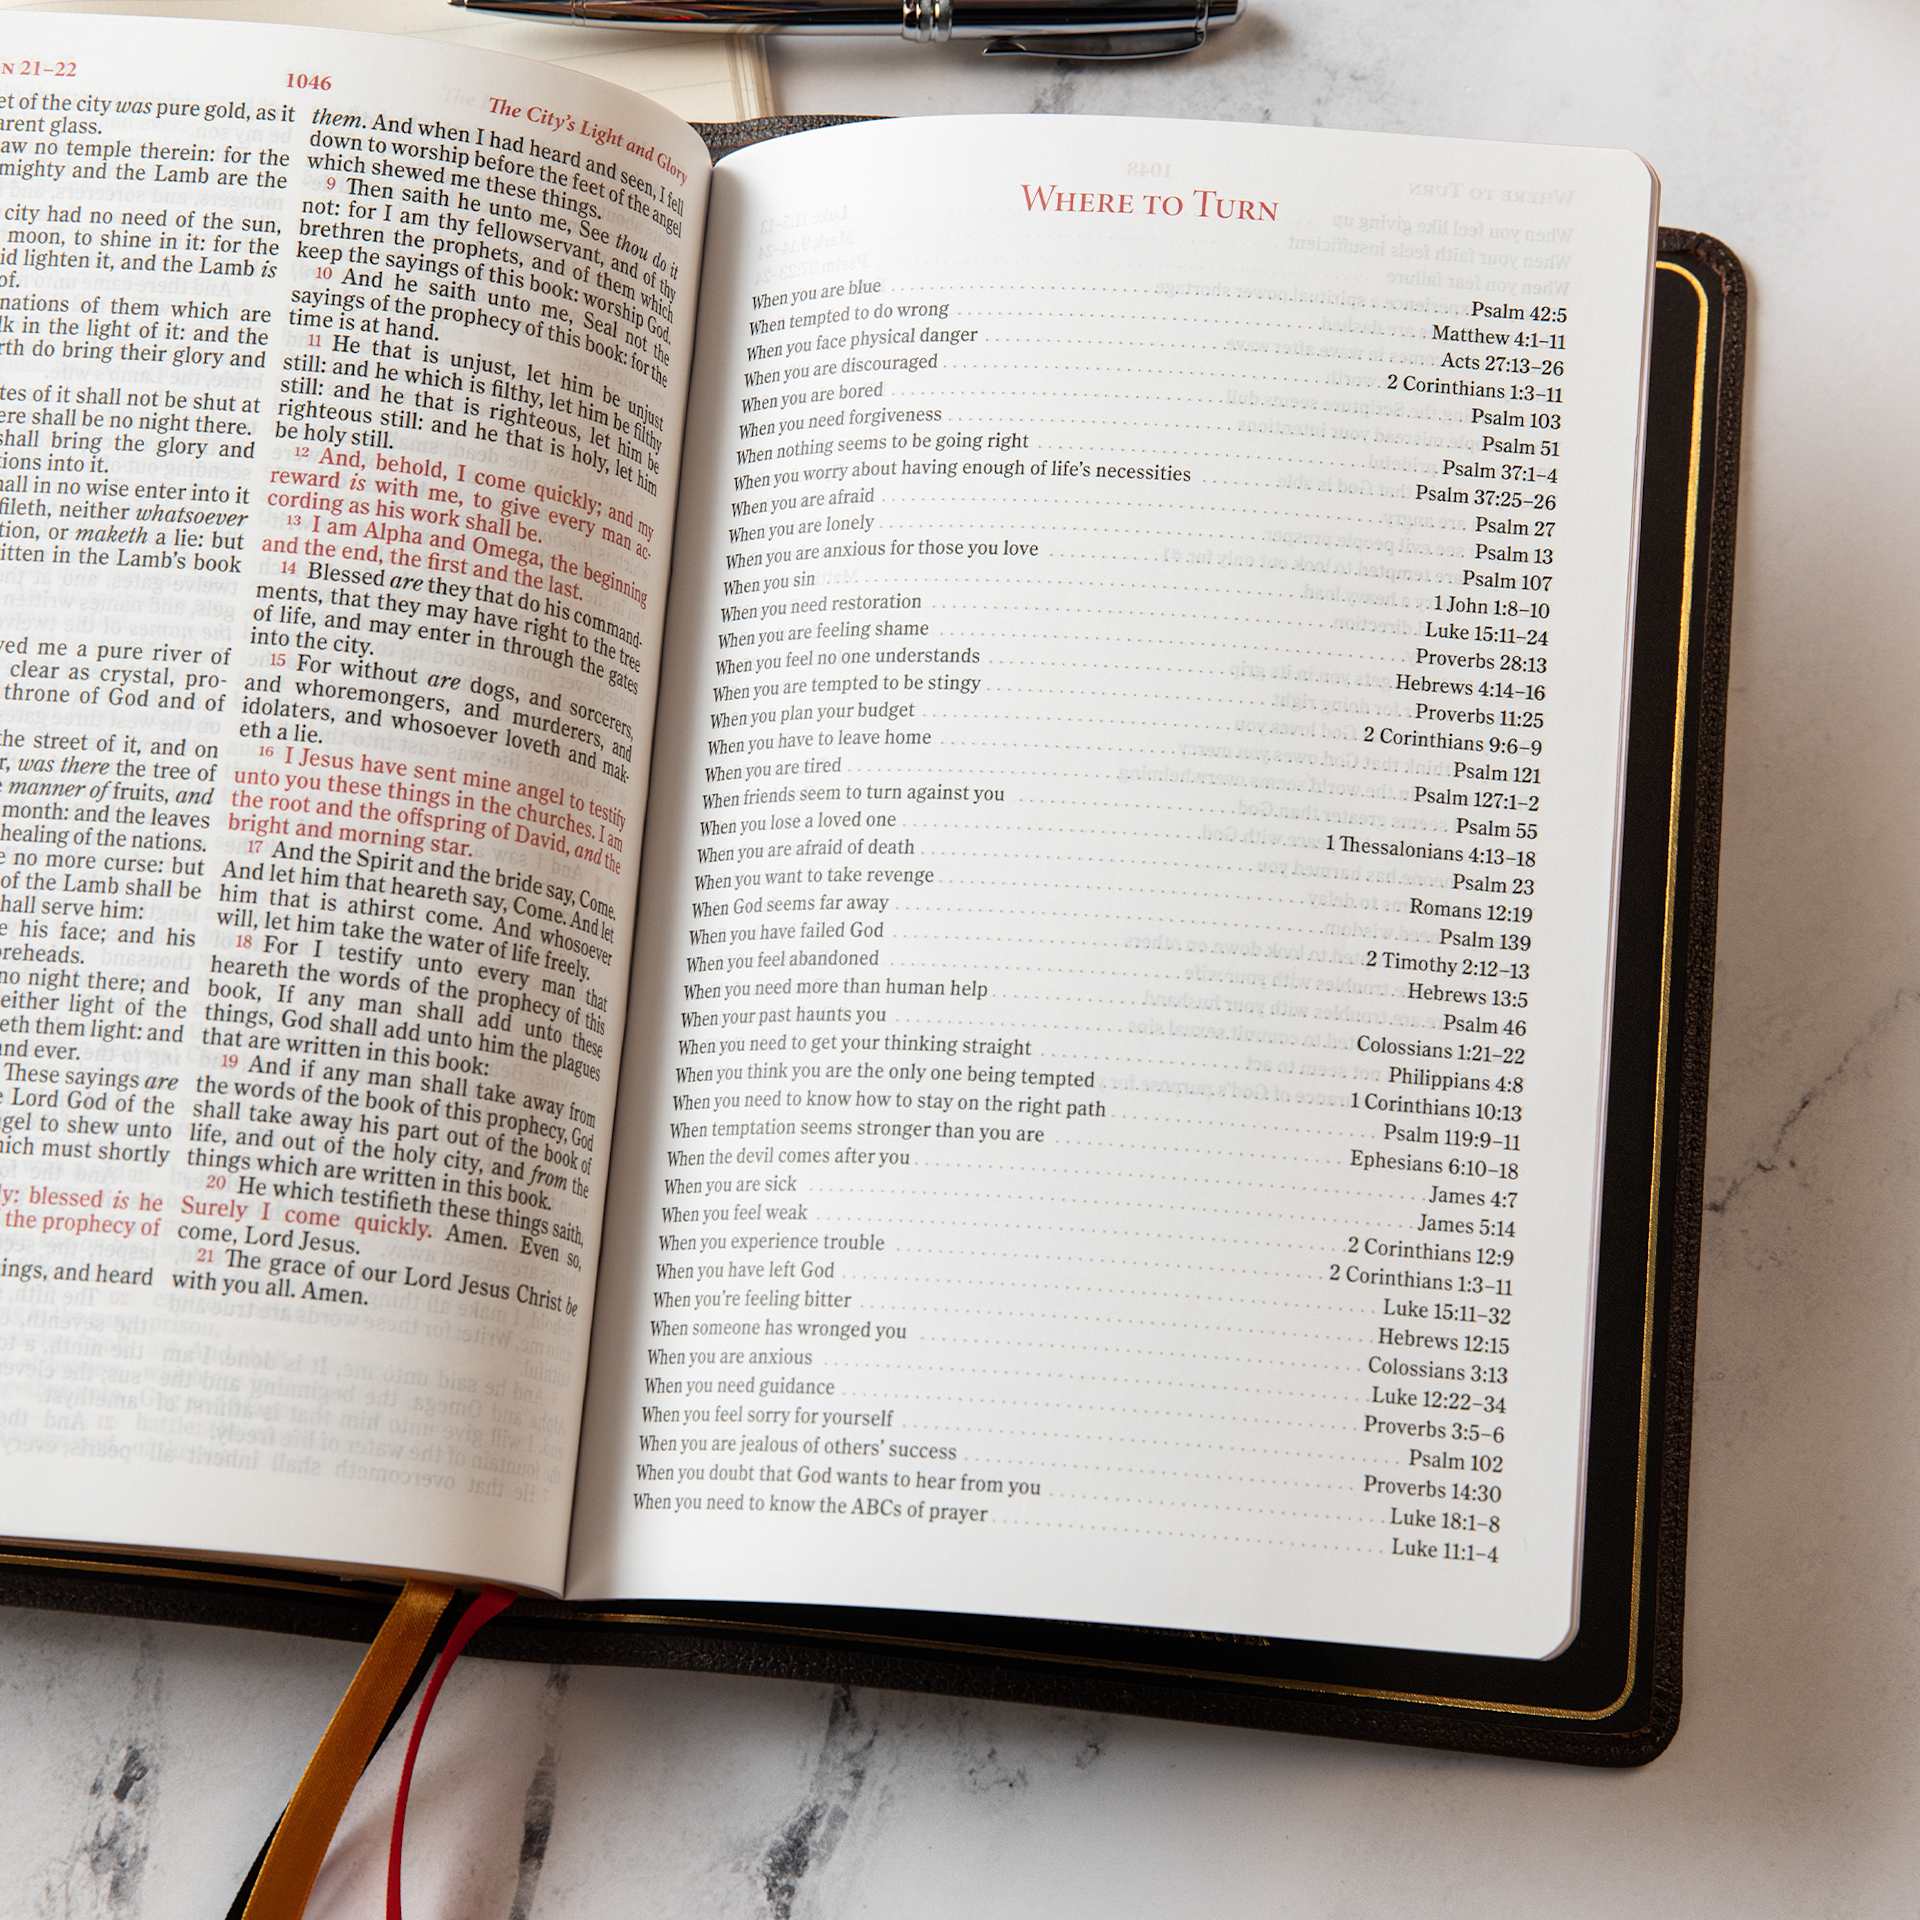 N 21–22
et of the city was pure gold, as it
arent glass.
aw no temple therein: for the
mighty and the Lamb are the
city had no need of the sun,
moon, to shine in it: for the
id lighten it, and the Lamb is
of.
nations of them which are
lk in the light of it: and the
rth do bring their glory and
tes of it shall not be shut at
ere shall be no night there.
shall bring the glory and
tions into it.
hall in no wise enter into it
fileth, neither whatsoever
tion, or maketh a lie: but
itten in the Lamb's book
ved me a pure river of
clear as crystal, pro-
throne of God and of
the street of it, and on
r, was there the tree of
manner of fruits, and
month: and the leaves
healing of the nations.
e no more curse: but
of the Lamb shall be
hall serve him:
e his face; and his
oreheads.
no night there; and
either light of the
eth them light: and
nd ever.
These sayings are
e Lord God of the
gel to shew unto
hich must shortly
ly: blessed is he
the prophecy of
ings, and heard
1046
The City's Light and Glory
them. And when I had heard and seen, I fell
down to worship before the feet of the angel
which shewed me these things.
9 Then saith he unto me, See thou do it
not: for I am thy fellowservant, and of thy
brethren the prophets, and of them which
keep the sayings of this book: worship God.
10 And he saith unto me, Seal not the
sayings of the prophecy of this book: for the
time is at hand.
11 He that is unjust, let him be unjust
still: and he which is filthy, let him be filthy
still: and he that is righteous, let him be
righteous still: and he that is holy, let him
be holy still.
12 And, behold, I come quickly; and my
reward is with me, to give every man ac-
cording as his work shall be.
13 I am Alpha and Omega, the beginning
and the end, the first and the last.
14 Blessed are they that do his command-
ments, that they may have right to the tree
of life, and may enter in through the gates
into the city.
15 For without are dogs, and sorcerers,
and whoremongers, and murderers, and
idolaters, and whosoever loveth and mak-
eth a lie.
16 I Jesus have sent mine angel to testify
unto you these things in the churches. I am
the root and the offspring of David, and the
bright and morning star.
17 And the Spirit and the bride say, Come.
And let him that heareth say, Come. And let
him that is athirst come. And whosoever
will, let him take the water of life freely.
18 For I testify unto every man that
heareth the words of the prophecy of this
book, If any man shall add unto these
things, God shall add unto him the plagues
that are written in this book:
19 And if any man shall take away from
the words of the book of this prophecy, God
shall take away his part out of the book of
life, and out of the holy city, and from the
things which are written in this book.
20 He which testifieth these things saith,
Surely I come quickly. Amen. Even so,
come, Lord Jesus.
21 The grace of our Lord Jesus Christ be
with you all. Amen.
WHERE TO TURN
When you are blue Psalm 42:5
When tempted to do wrong Matthew 4:1–11
When you face physical danger Acts 27:13–26
When you are discouraged 2 Corinthians 1:3–11
When you are bored Psalm 103
When you need forgiveness Psalm 51
When nothing seems to be going right Psalm 37:1–4
When you worry about having enough of life's necessities Psalm 37:25–26
When you are afraid Psalm 27
When you are lonely Psalm 13
When you are anxious for those you love Psalm 107
When you sin 1 John 1:8–10
When you need restoration Luke 15:11–24
When you are feeling shame Proverbs 28:13
When you feel no one understands Hebrews 4:14–16
When you are tempted to be stingy Proverbs 11:25
When you plan your budget 2 Corinthians 9:6–9
When you have to leave home Psalm 121
When you are tired Psalm 127:1–2
When friends seem to turn against you Psalm 55
When you lose a loved one 1 Thessalonians 4:13–18
When you are afraid of death Psalm 23
When you want to take revenge Romans 12:19
When God seems far away Psalm 139
When you have failed God 2 Timothy 2:12–13
When you feel abandoned Hebrews 13:5
When you need more than human help Psalm 46
When your past haunts you Colossians 1:21–22
When you need to get your thinking straight Philippians 4:8
When you think you are the only one being tempted 1 Corinthians 10:13
When you need to know how to stay on the right path Psalm 119:9–11
When temptation seems stronger than you are Ephesians 6:10–18
When the devil comes after you James 4:7
When you are sick James 5:14
When you feel weak 2 Corinthians 12:9
When you experience trouble 2 Corinthians 1:3–11
When you have left God Luke 15:11–32
When you're feeling bitter Hebrews 12:15
When someone has wronged you Colossians 3:13
When you are anxious Luke 12:22–34
When you need guidance Proverbs 3:5–6
When you feel sorry for yourself Psalm 102
When you are jealous of others' success Proverbs 14:30
When you doubt that God wants to hear from you Luke 18:1–8
When you need to know the ABCs of prayer Luke 11:1–4